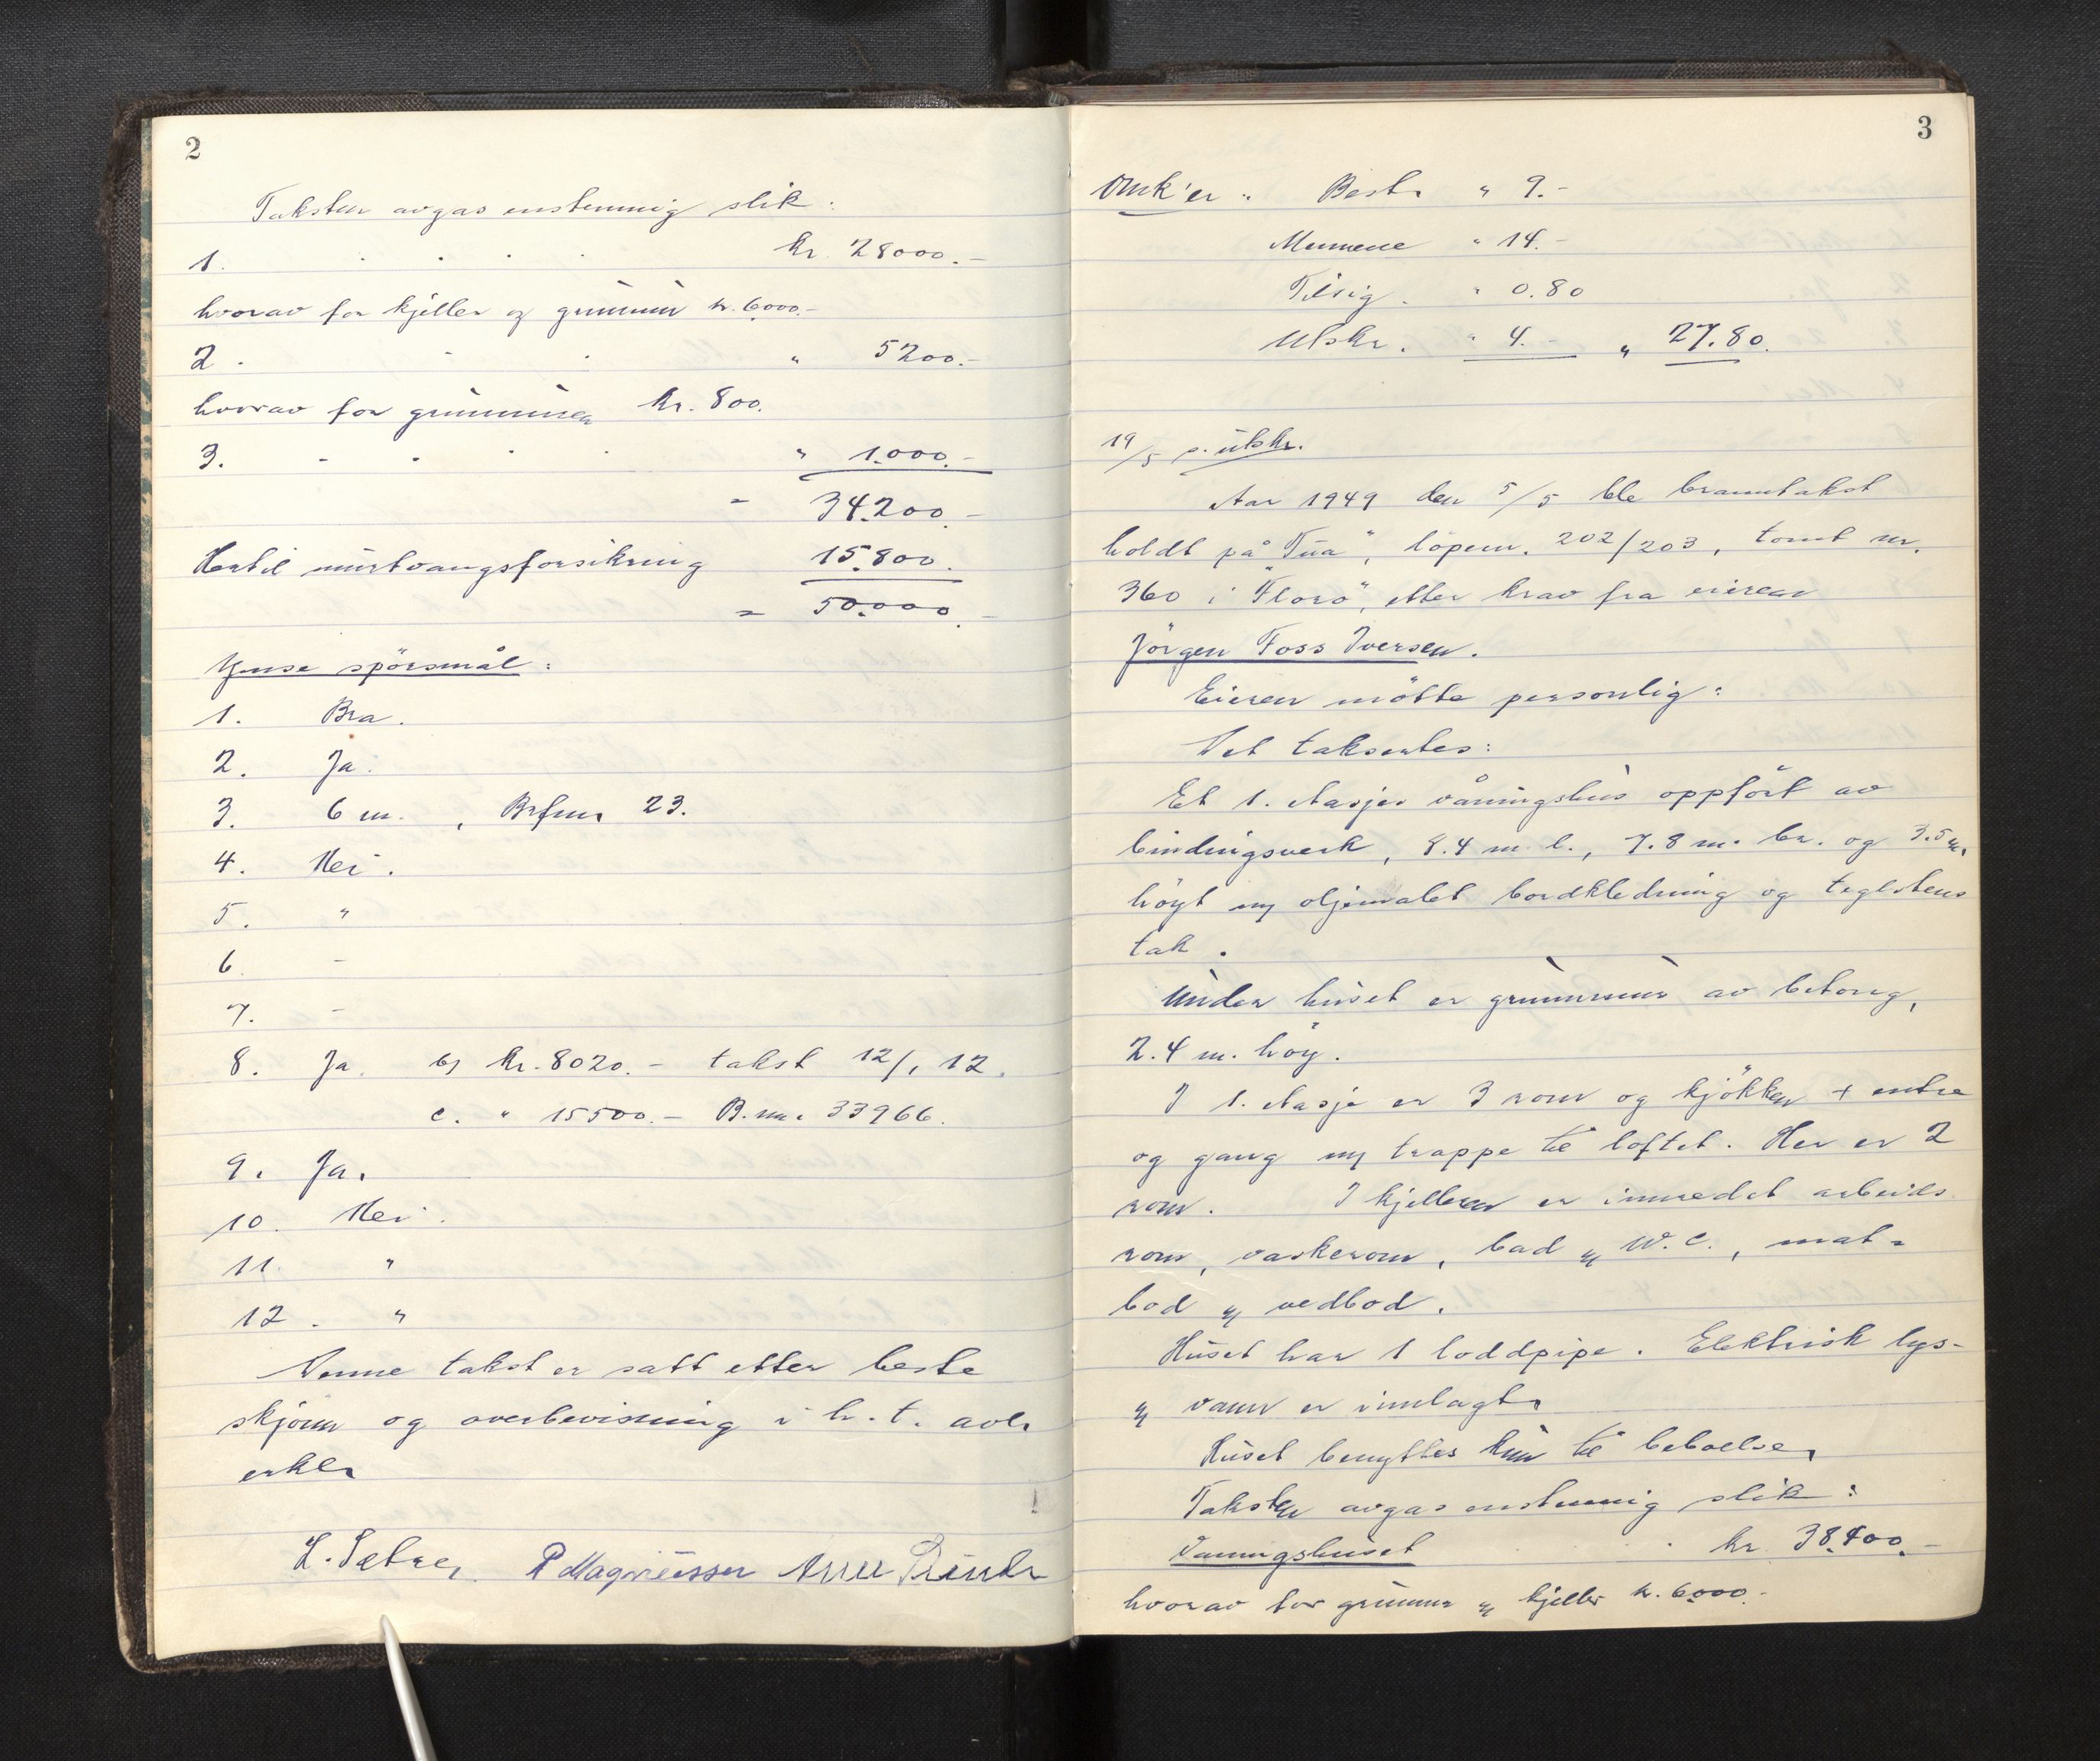 2
Taksten avgas enstemmig slik:
1. . . . . kr 28000.-
hvorav for kjeller og grunnmur kr. 6000.-
2. . . " 5200.-
hvorav for grunnmuren kr. 800.
3. . . . " 1.000.-
= 34.200.-
Hertil murtvangsforsikring 15.800.
= 50.000.-
Ymse spörsmål:
1. Bra.
2. Ja.
3. 6 m. , Brfmr 23.
4. Nei.
5. "
6 -
7. -
8. Ja. b) kr. 8020.- takst 12/1 12.
c. " 15500.- B.nr. 33966.
9. Ja.
10. Nei.
11. "
12. "
Denne takst er satt etter beste
skjönn og overbevisning i h.t. avl.
erkl.
L. Sætre. P Magnussen
3
Omk'er: Best. " 9.-
Mennene " 14.-
Tilsig. " 0.80
Utskr. " 4.- " 27.80.
19/5 s. utskr.
Aar 1949 den 5/5 ble branntakst
holdt på "Tua", löpenr. 202/203, tomt nr.
360 i "Florö", etter krav fra eieren
Jörgen Foss Iversen.
Eieren mötte personlig:
Det taksertes:
Et 1. etasjes våningshus oppfört av
bindingsverk, 8.4 m. l., 7.8 m. br. og 3.5 m.
höyt m/ oljemalet bordkledning og teglstens
tak.
Under huset er grunnmur av betong,
2.4 m. höy.
I 1. etasje er 3 rom og kjökken + entre
og gang m/ trappe til loftet. Her er 2
rom. I kjelleren er innredet arbeids
rom, vaskerom, bad og W.C., mat=
bod og vedbod.
Huset har 1 loddpipe. Elektrisk lys-
og vann er innlagt.
Huset benyttes kun til beboelse.
Taksten avgas enstemmig slik:
Våningshuset . . kr. 38.400.-
hvorav for grunnm. og kjeller kr. 6000.-